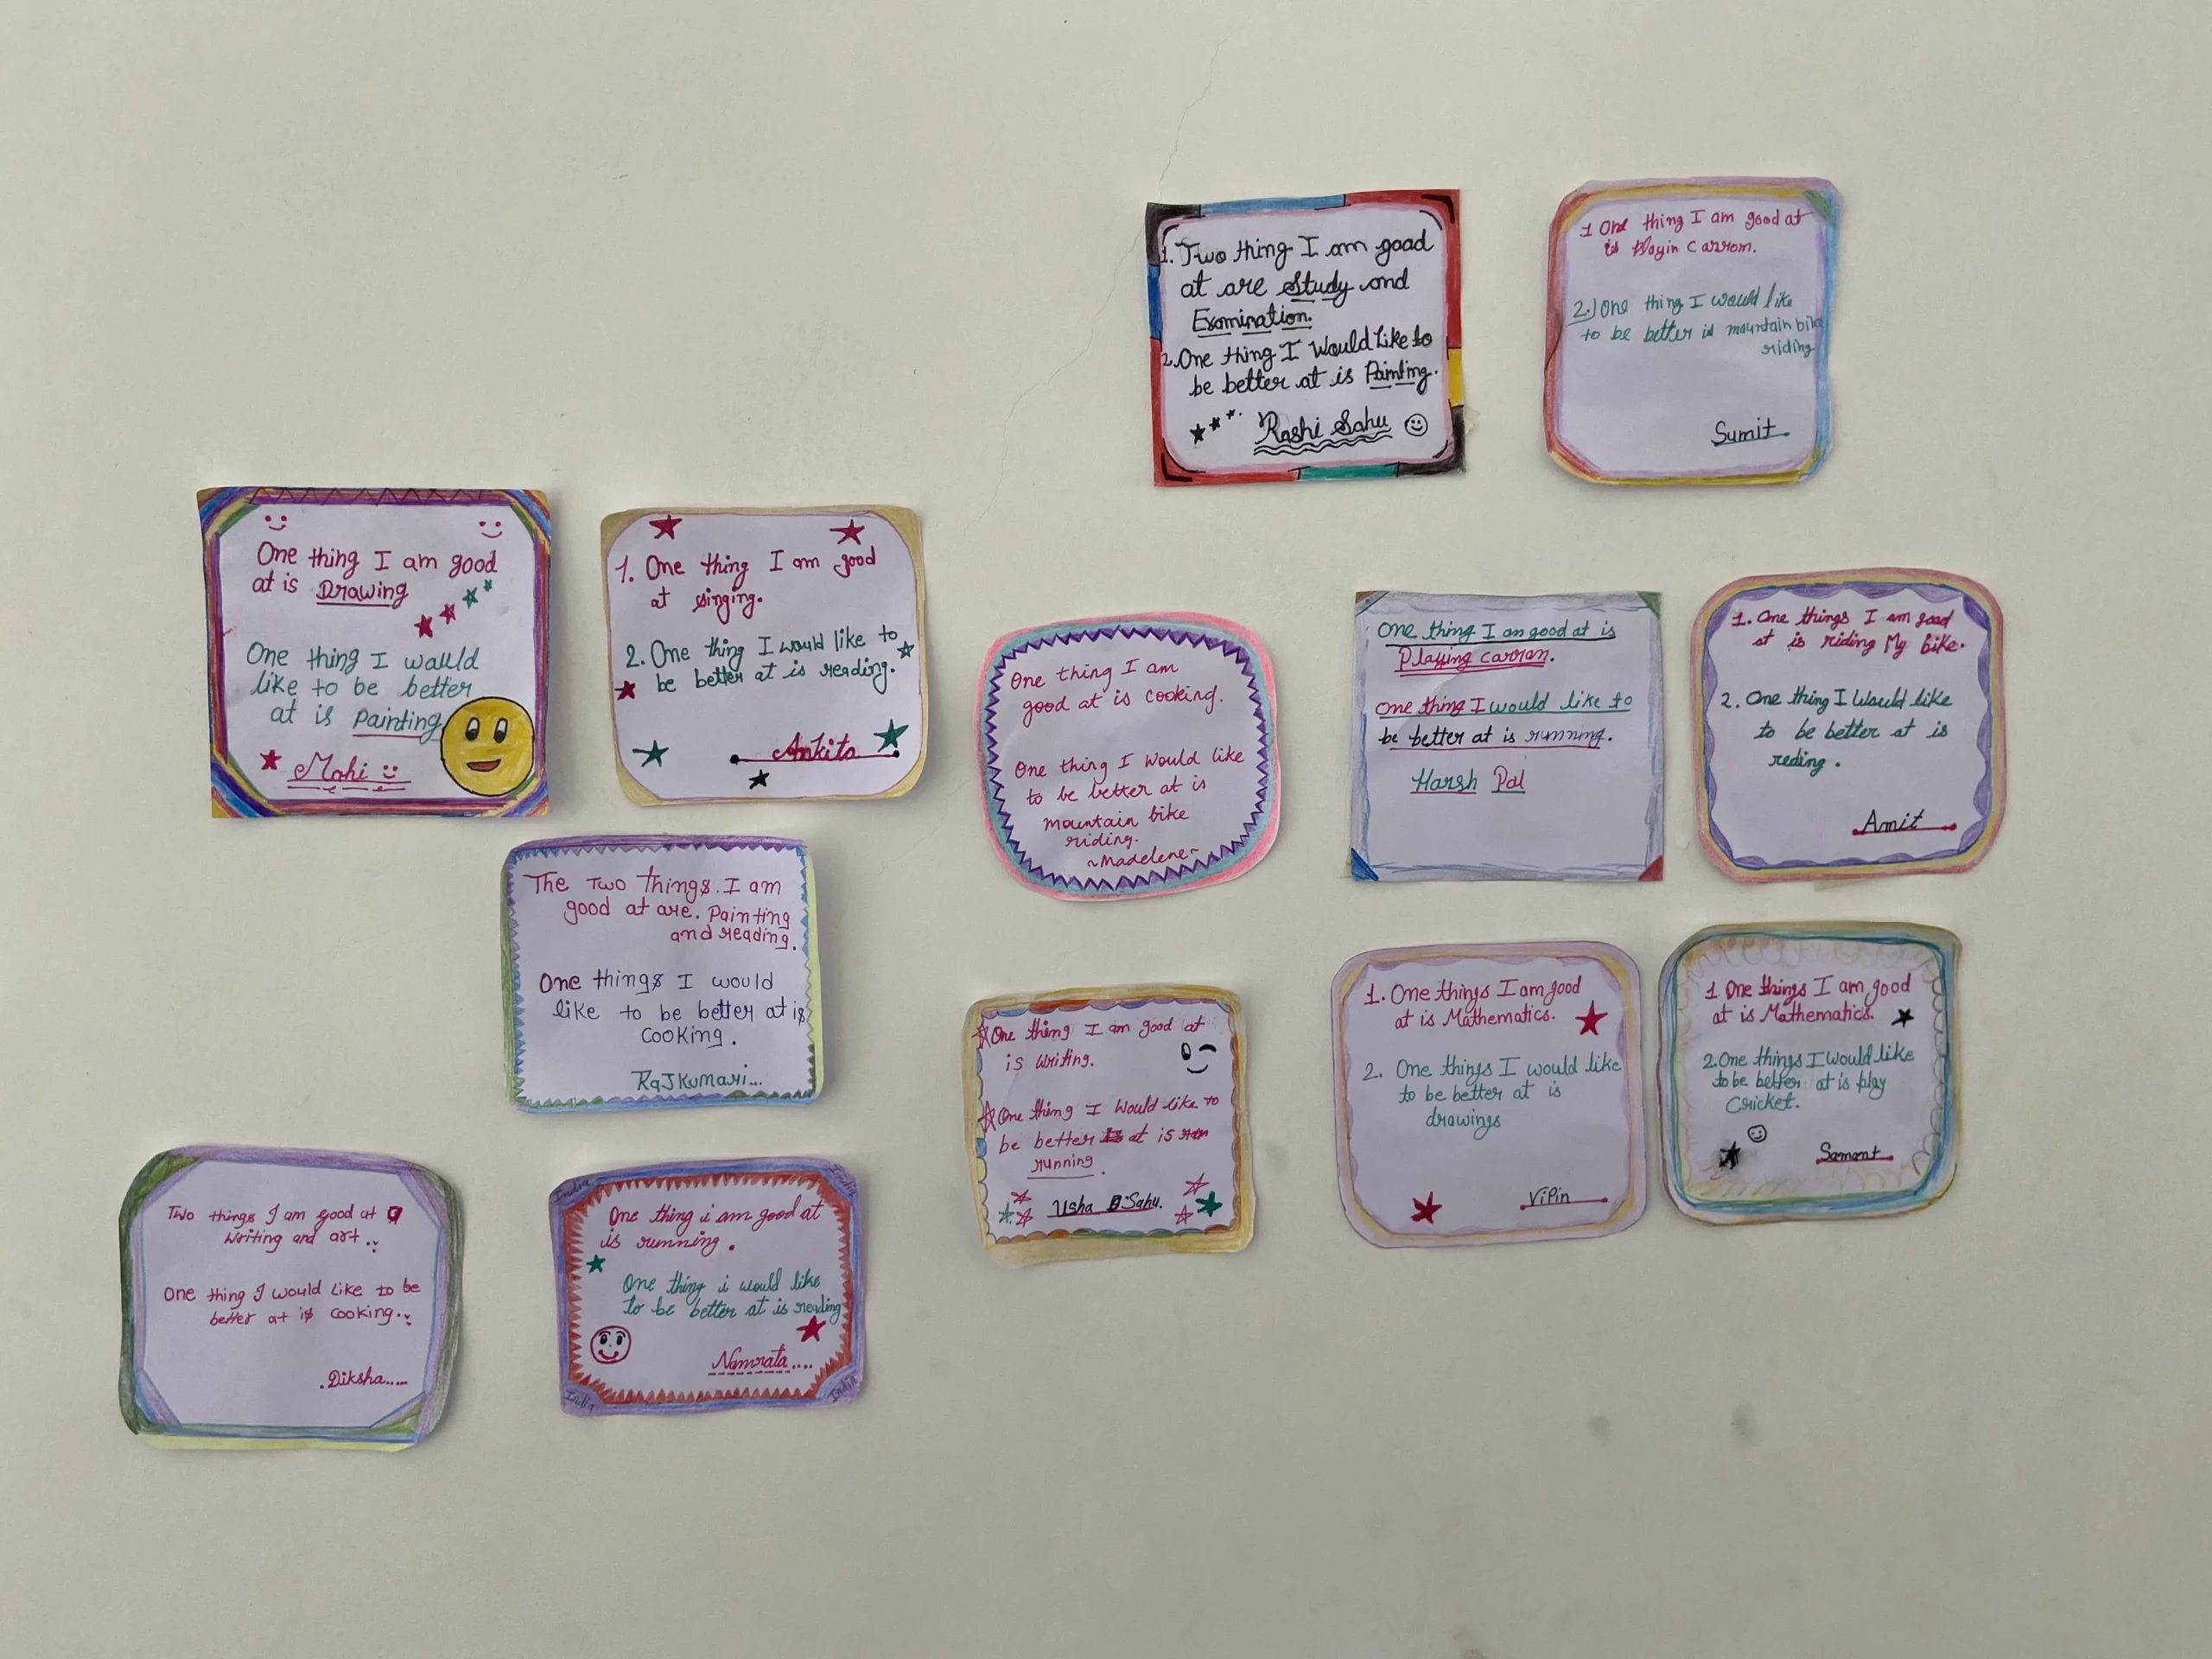 1. Two thing I am goad
at are Study and
Examination.
2.One thing I Would Like to
be better at is Painting.
Rashi Sahu
1 One thing I am good at
is Playin Carrom.
2.) One thing I would like
to be better is mountain bike
riding
Sumit
One thing I am good
at is Drawing
One thing I wauld
like to be better
at is Painting
Mahi
1. One thing I am good
at singing.
2. One thing I would like to
be better at is reading.
Ankita
One thing I am
good at is cooking.
One thing I would like
to be better at is
mountain bike
riding.
~Madelene~
One thing I am good at is
Playing carran.
One thing I would like to
be better at is running.
Harsh Pal
1. One things I am good
at is riding My bike.
2. One thing I Would like
to be better at is
reding.
Amit
The Two Things. I am
good at are. Painting
and reading.
One things I would
like to be better at is
Cooking.
RaJKumari...
One thing I am good at
is Writing.
One thing I Would like to
be better at is
running.
Usha Sahu.
1. One things I am good
at is Mathematics.
2. One things I would like
to be better at is
drawings
ViPin
1 One things I am good
at is Mathematics.
2.One things I Would like
to be better at is play
Cricket.
Samant
Two things I am good at
Writing and art..
One thing I would like to be
better at is Cooking..
.Diksha.....
India
India
One thing i am good at
is running.
One thing i would like
to be better at is reading
Namrata....
India
India